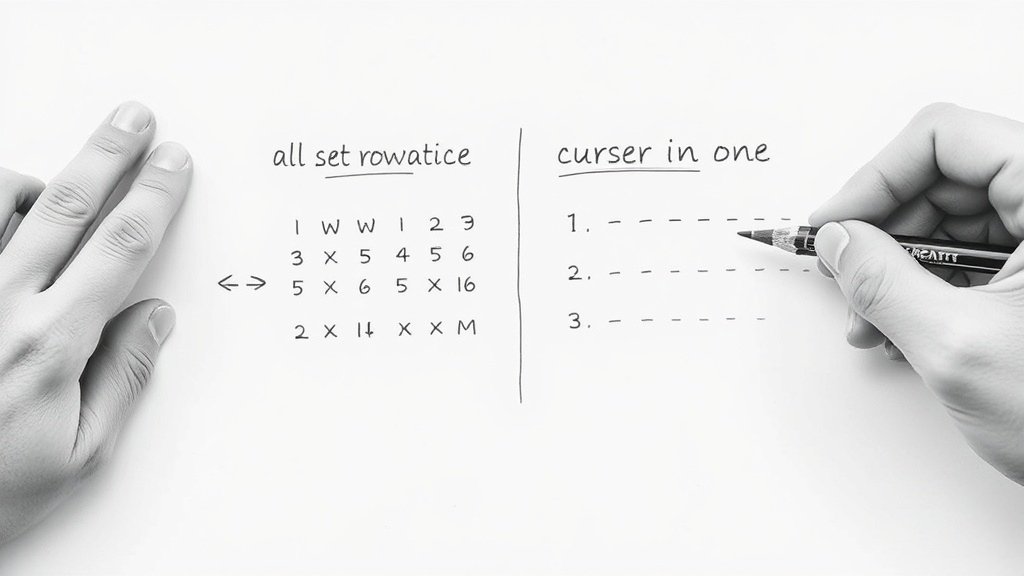 all set rowatice
1 W W 1 2 3
3 X 5 4 5 6
5 X 6 5 X 16
2 X 14 X X M
curser in one
1.
2.
3.